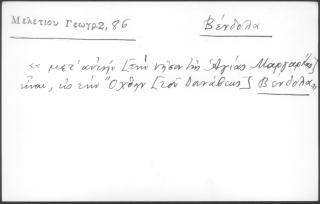 Μελετίου Γεωγρ, 86
Βένδολα
« μετ' αὐτὴν [τὴν νῆσον τῆς Ἁγίας Μαργαρίτης]
εἶναι, εἰς τὴν Ὄχθην [τοῦ Δανάβεως] Βένδολα,